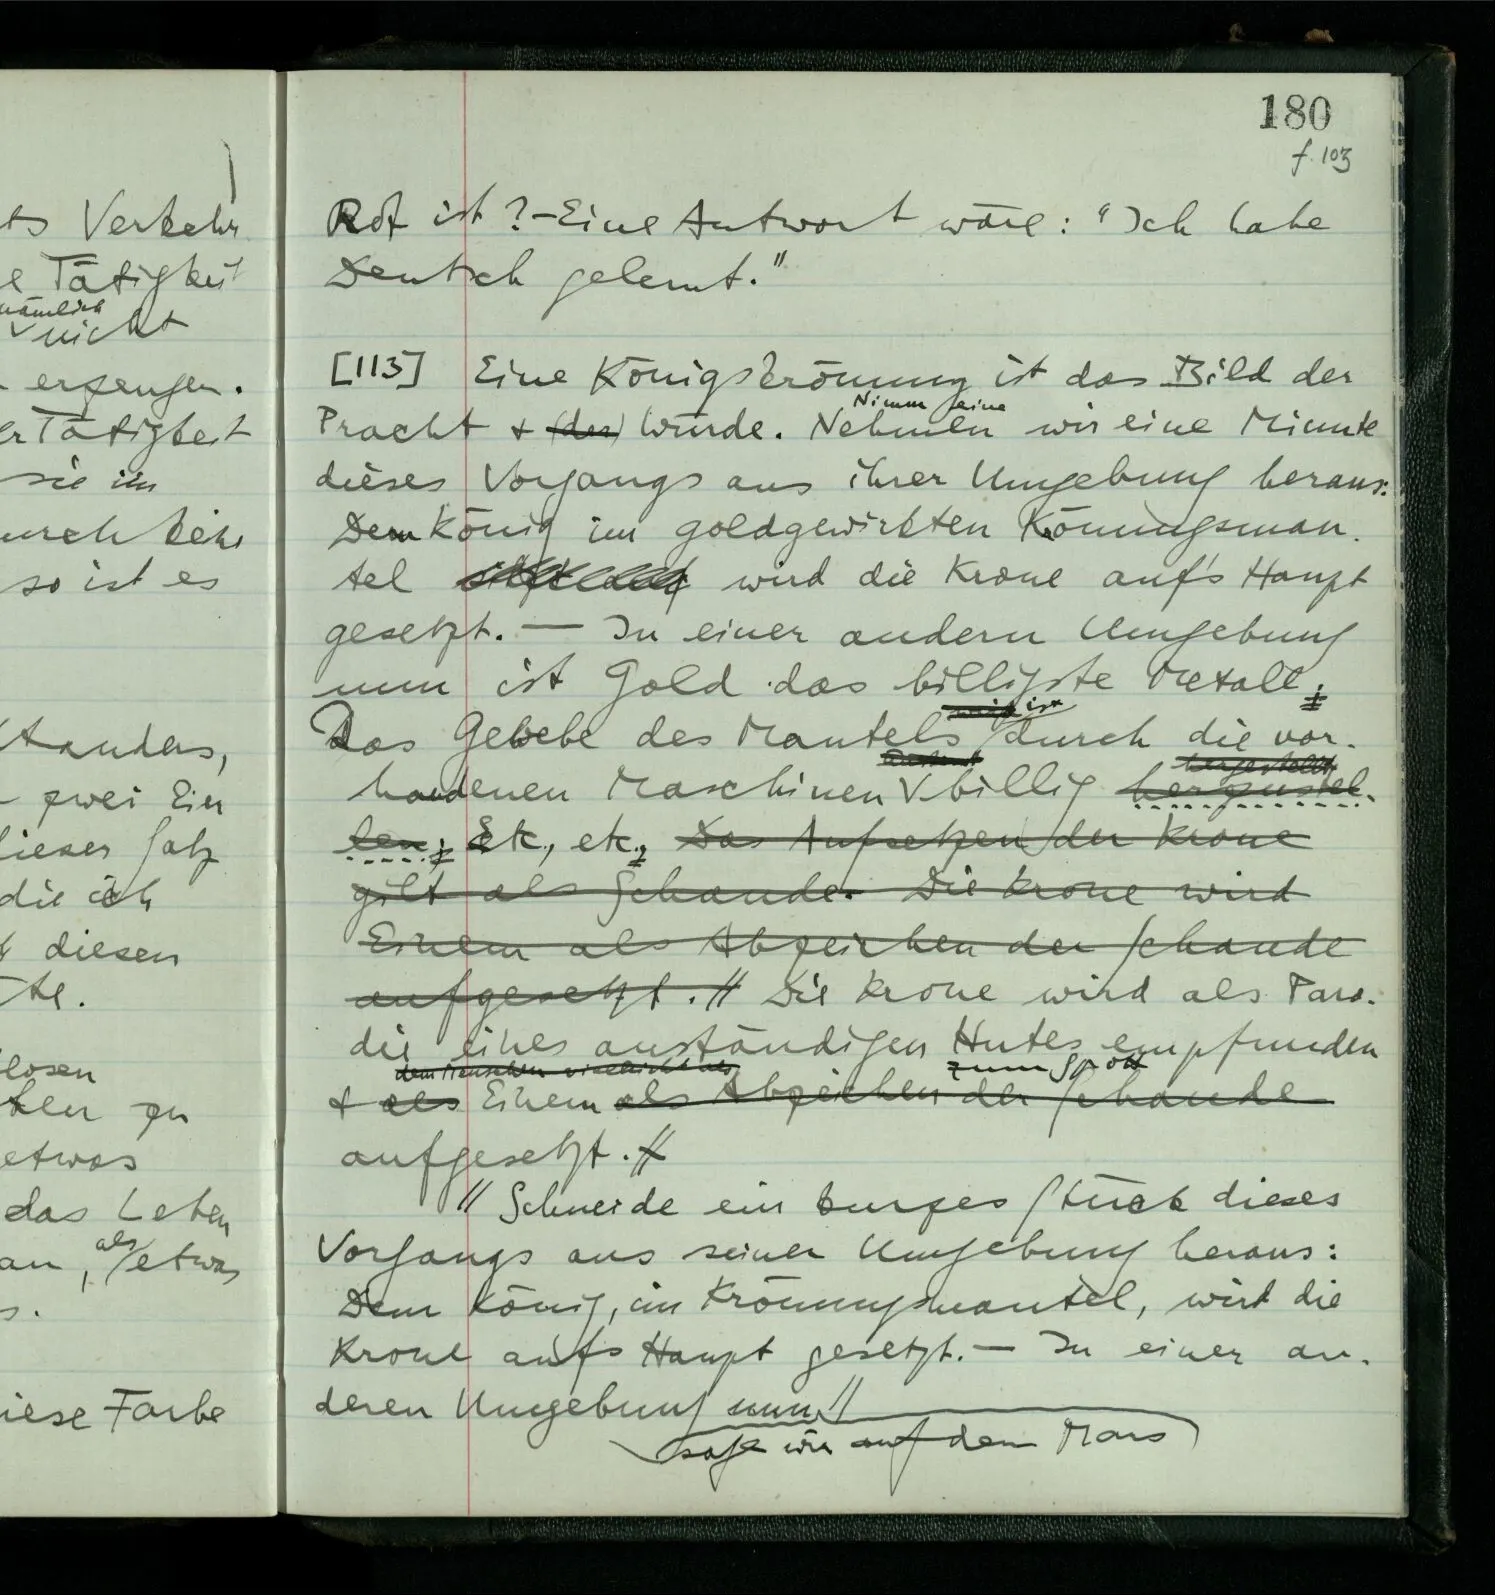 ts Verkehr
e Tätigkeit
nämlich
nicht
erzeugen.
er Tätigkeit
sie im
durch kein
so ist es
standers,
zwei Ein
dieser Satz
die ich
diesen
te.
losen
zu
etwas
das Leben
an, als etwas
s.
diese Farbe
180
f. 103
Rot ist? – Eine Antwort wäre: "Ich habe
Deutsch gelernt."
[113] Eine Königskrönung ist das Bild der
Pracht + (der) Würde. Nehmen wir eine Minute
Nimm eine
dieses Vorgangs aus ihrer Umgebung heraus:
Dem König im goldgewirkten Krönungsman-
tel wird die Krone auf's Haupt
gesetzt. — In einer andern Umgebung
nun ist Gold das billigste Metall;
Das Gewebe des Mantels durch die vor-
ist
handenen Maschinen billig herzustel-
hergestellt
len; Etc, etc, Das Aufsetzen der Krone
gilt als Schande. Die Krone wird
Einem als Abzeichen der Schande
aufgesetzt. // Die Krone wird als Paro-
die eines anständigen Hutes empfunden
dem Menschen vielleicht
zum Spott
+ als Einem als Abzeichen der Schande
aufgesetzt. //
// Schneide ein kurzes Stück dieses
Vorgangs aus seiner Umgebung heraus:
Dem König, im Krönungsmantel, wird die
Krone aufs Haupt gesetzt. — In einer an-
deren Umgebung nun //
sage wir auf dem Mars